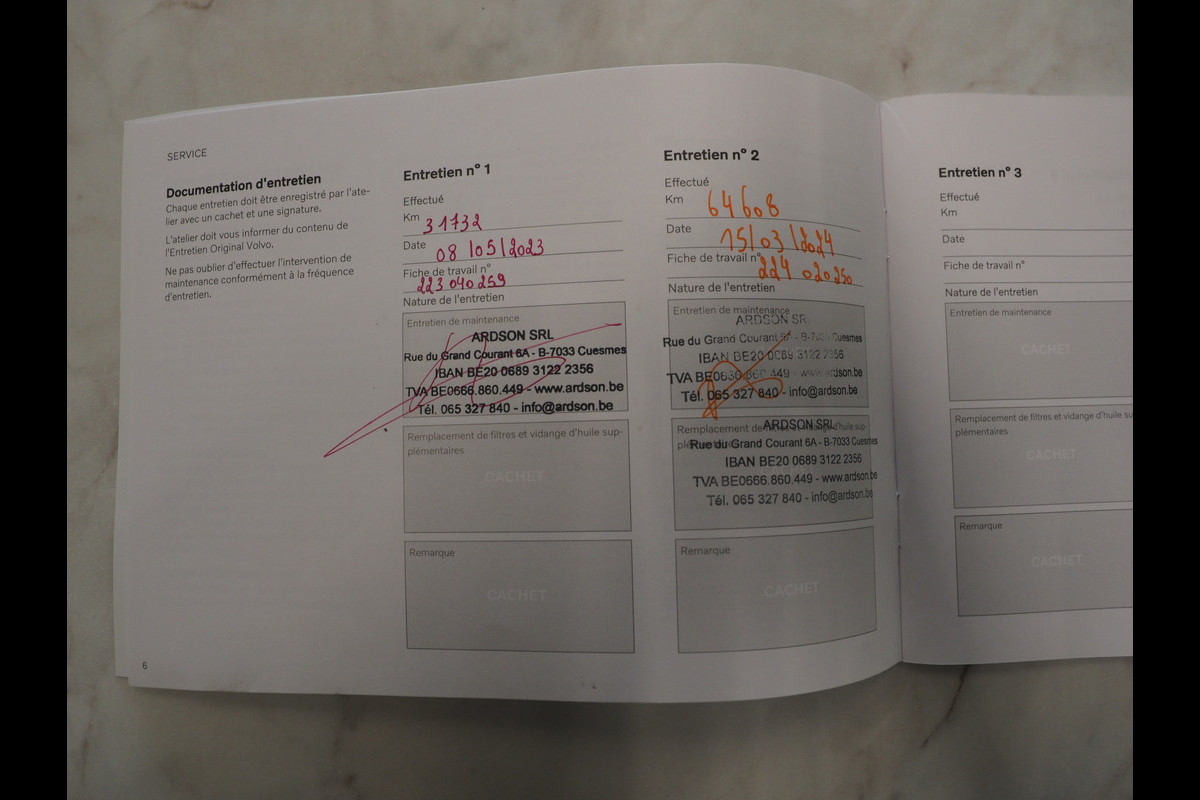 SERVICE
Documentation d'entretien
Chaque entretien doit être enregistré par l'ate-
lier avec un cachet et une signature.
L'atelier doit vous informer du contenu de
l'Entretien Original Volvo.
Ne pas oublier d'effectuer l'intervention de
maintenance conformément à la fréquence
d'entretien.
6
Entretien n° 1
Effectué
Km 31732
Date 08/05/2023
Fiche de travail n°
223 040 259
Nature de l'entretien
Entretien de maintenance
ARDSON SRL
Rue du Grand Courant 6A - B-7033 Cuesmes
IBAN BE20 0689 3122 2356
TVA BE0666.860.449 - www.ardson.be
Tél. 065 327 840 - info@ardson.be
Remplacement de filtres et vidange d'huile sup-
plémentaires
CACHET
Remarque
CACHET
Entretien n° 2
Effectué
Km 64608
Date 15/03/2024
Fiche de travail n° 224 020250
Nature de l'entretien
Entretien de maintenance
ARDSON SRL
Rue du Grand Courant 6A - B-7033 Cuesmes
IBAN BE20 0689 3122 2356
TVA BE0636.860.449 - www.ardson.be
Tél. 065 327 840 - info@ardson.be
Remplacement de filtres et vidange d'huile sup-
ARDSON SRL
Rue du Grand Courant 6A - B-7033 Cuesmes
IBAN BE20 0689 3122 2356
TVA BE0666.860.449 - www.ardson.be
Tél. 065 327 840 - info@ardson.be
Remarque
CACHET
Entretien n° 3
Effectué
Km
Date
Fiche de travail n°
Nature de l'entretien
Entretien de maintenance
CACHET
Remplacement de filtres et vidange d'huile su
plémentaires
CACHET
Remarque
CACHET